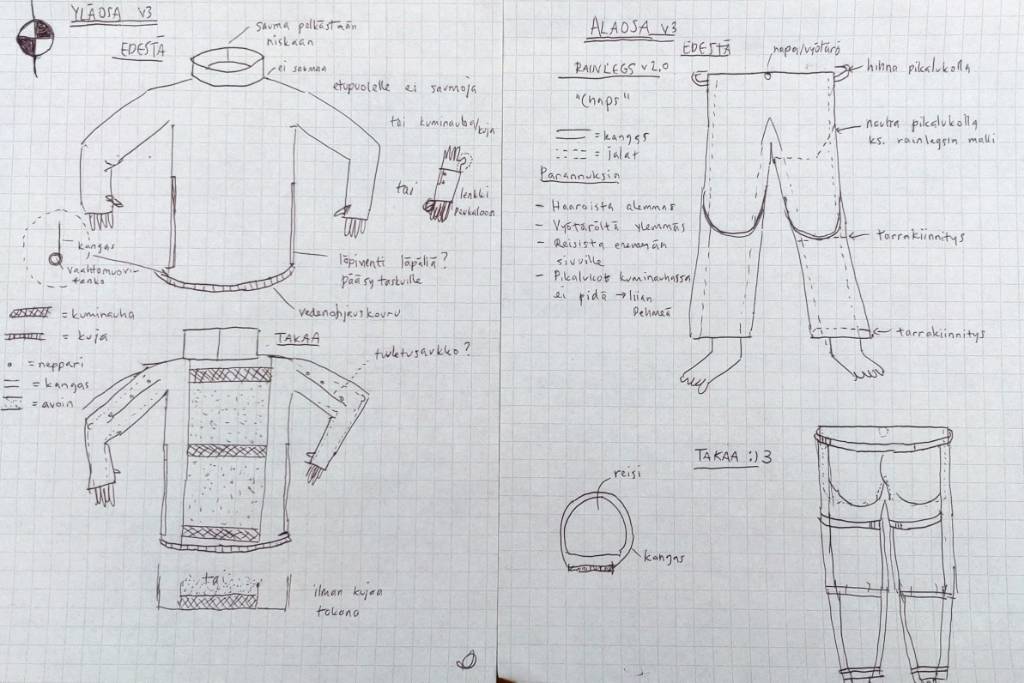 YLÄOSA v3
EDESTÄ
sauma pelkästään
niskaan
ei saumaa
etupuolelle ei saumoja
tai kuminauha/
kuja
tai
lenkki
peukaloon
kangas
vaahtomuovi-
tanko
läpivienti läpällä?
pääsy taskuille
vedenohjauskouru
= kuminauha
= kuja
= neppari
= kangas
= avoin
TAKAA
tuuletusaukko?
tai
ilman kujaa
takana
ALAOSA v3
EDESTÄ
RAINLEGS v2.0
"Chaps"
= kangas
= jalat
Parannuksin
- Haaroista alemmas
- Vyötäröltä ylemmäs
- Reisistä enemmän
sivuille
- Pikalukot kuminauhassa
ei pidä → liian
pehmeä
napa/vyötärö
hihna pikalukolla
nauha pikalukolla
ks. rainlegsin malli
tarrakiinnitys
tarrakiinnitys
TAKAA :)3
reisi
kangas